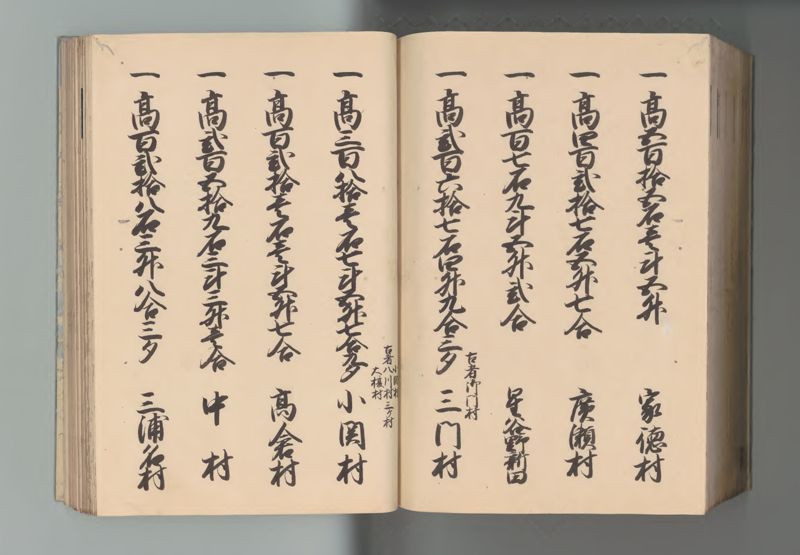 一高五百拾五石壱斗五升 家徳村
一高四百弐拾七石五升七合 廣瀬村
一高百七石九斗五升弐合 星谷野新田
一高弐百六拾七石四升九合三夕 三門村
古者御門村
一高三百八拾壱石七斗五升七合夕 小関村
古者八川村三ヶ村
大榎村
一高百弐拾壱石壱斗五升七合 高倉村
一高弐百五拾九石三斗三升壱合 中村
一高百弐拾八石三升八合三夕 三浦名村